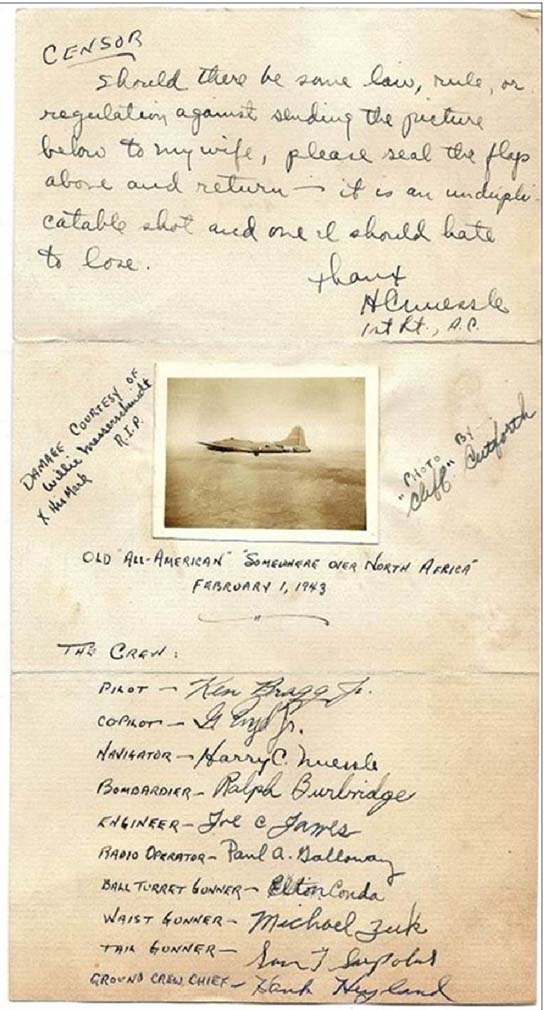 CENSOR
Should there be some law, rule, or
regulation against sending the picture
below to my wife, please seal the flaps
above and return — it is an undupli-
catable shot and one I should hate
to lose.
Thanx
HCNuessle
1st Lt., A.C.
DAMAGE COURTESY OF
Willie Messerschmidt
X His Mark R.I.P.
"PHOTO BY
Cliff" Cutforth
OLD "ALL-AMERICAN" "SOMEWHERE OVER NORTH AFRICA"
FEBRUARY 1, 1943
THE CREW:
PILOT — Ken Bragg Jr.
COPILOT — G Jr.
NAVIGATOR — Harry C. Nuessle
BOMBARDIER — Ralph Burbridge
ENGINEER — Joe C James
RADIO OPERATOR — Paul A. Galloway
BALL TURRET GUNNER — Elton Conda
WAIST GUNNER — Michael Zuk
TAIL GUNNER — Sam T
GROUND CREW CHIEF — Hank Hyland